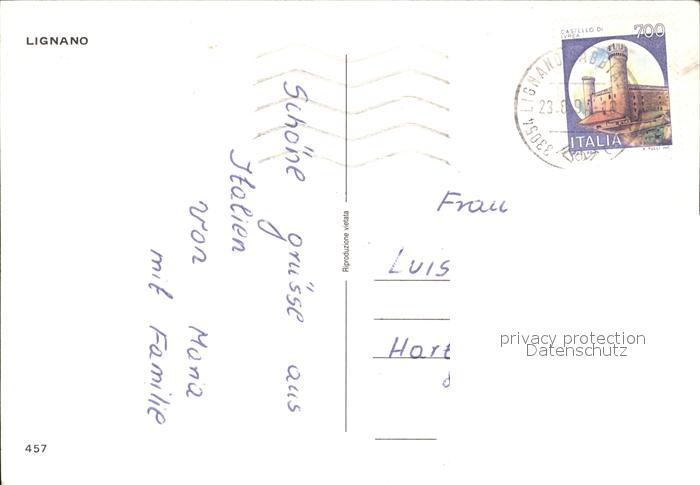 LIGNANO
457
Schöne grüsse aus
Italien
von Maria
mit Familie
Riproduzione vietata
CASTELLO DI
IVREA
700
ITALIA
33054 LIGNANO SABBI
23.8.9
Frau
Luis
Hart
privacy protection
Datenschutz